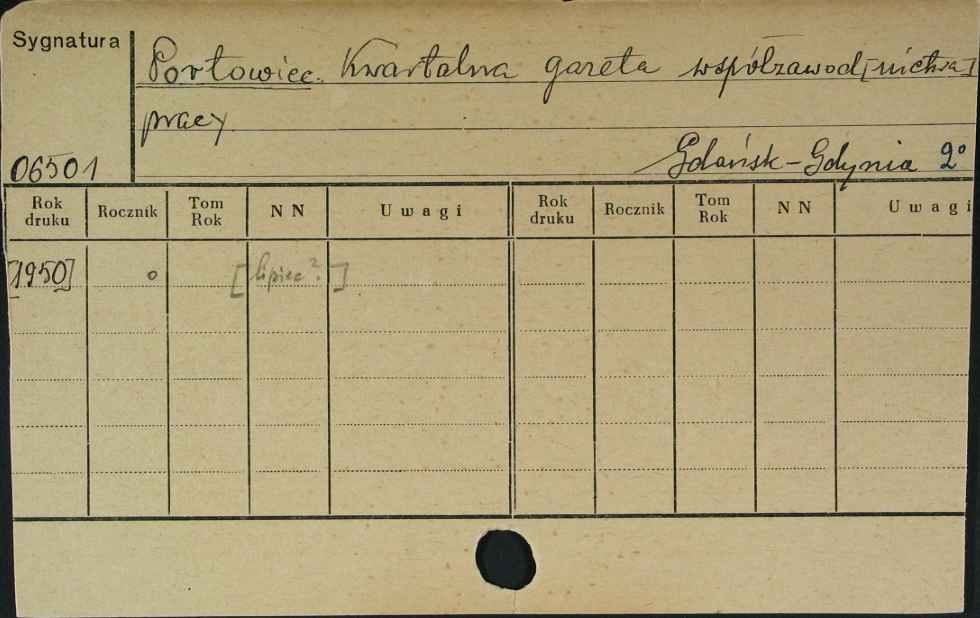 Sygnatura
Portowiec. Kwartalna gazeta współzawod[nictwa]
pracy
06501
Gdańsk-Gdynia 2°
Rok druku Rocznik Tom Rok NN Uwagi Rok druku Rocznik Tom Rok NN Uwagi
[1950] o [lipiec?]